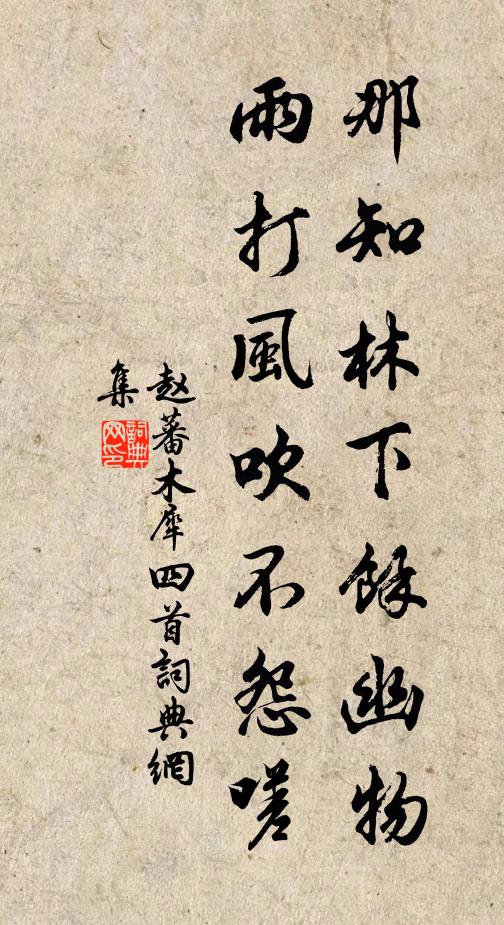 那知林下餘幽物
雨打風吹不怨嗟
赵蕃木犀四首詞典網
集
詞典
网印